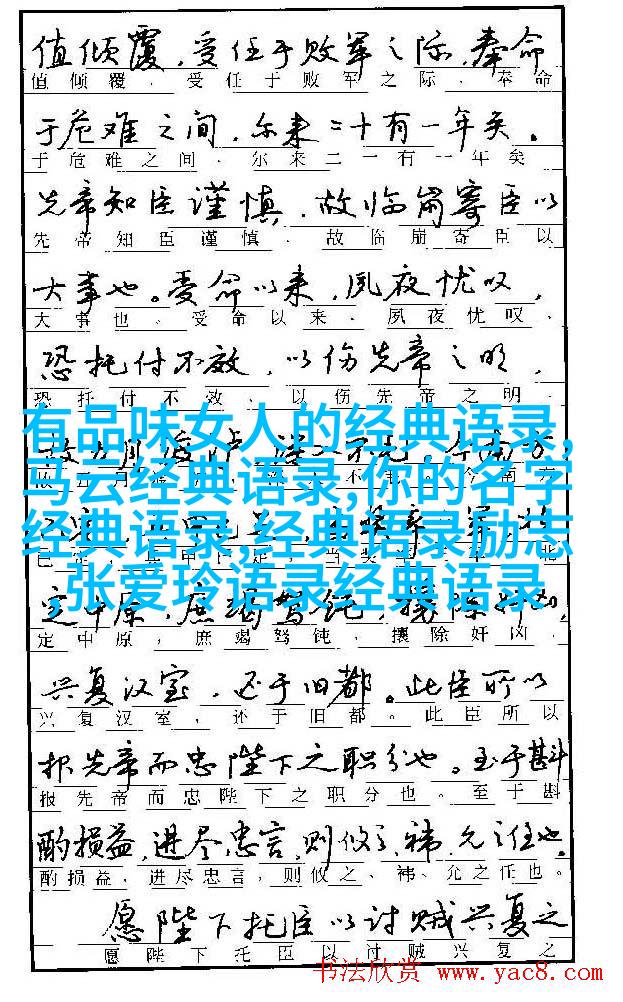 值倾覆，受任于败军之际，奉命
值倾覆，受任于败军之际，奉命
于危难之间，尔来二十有一年矣。
于危难之间，尔来二一有一年矣
先帝知臣谨慎，故临崩寄臣以
先帝知臣谨慎，故临崩寄臣以
大事也。受命以来，夙夜忧叹，
大事也。受命以来，夙夜忧叹，
恐托付不效，以伤先帝之明，
恐托付不效，以伤先帝之明，
有品味女人的经典语录,
马云经典语录,你的名字
经典语录,经典语录励志
,张爱玲语录经典语录
定中原，庶竭驽钝，攘除奸凶，
定中原，庶竭驽钝，攘除奸凶，
兴复汉室，还于旧都。此臣所以
兴复汉室，还于旧都。此臣所以
报先帝而忠陛下之职分也。至于斟
报先帝而忠陛下之职分也。至于斟
酌损益，进尽忠言，则攸之、祎、允之任也。
酌损益，进尽忠言，则攸之、祎、允之任也。
愿陛下托臣以讨贼兴复之
愿陛下托臣以讨贼兴复之
书法欣赏 www.yac8.com